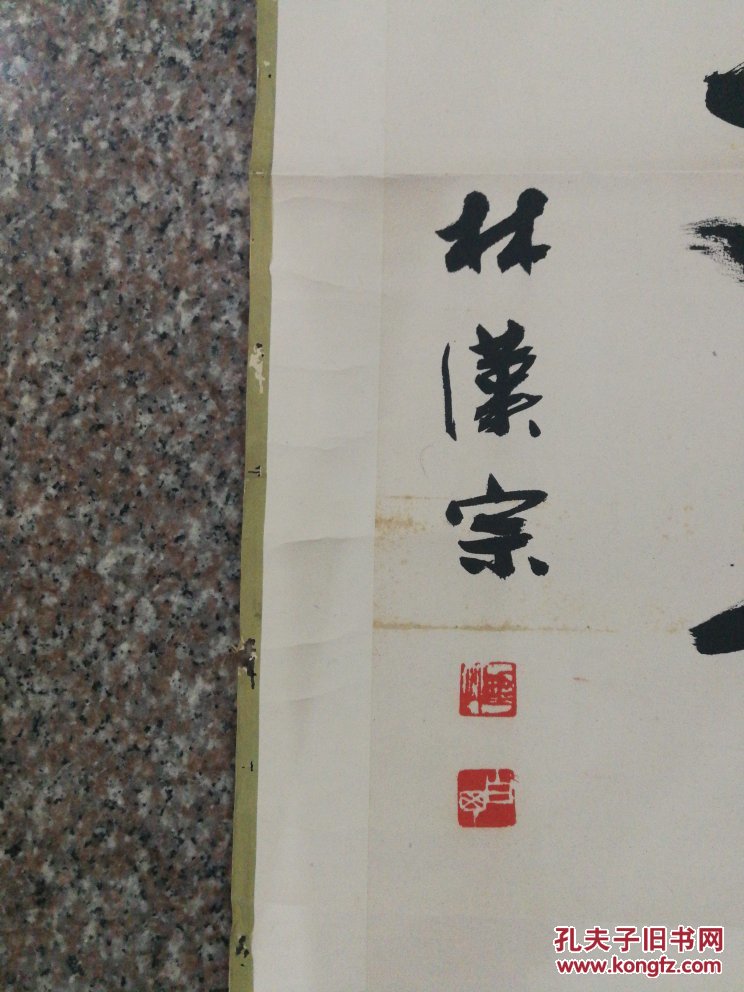 林
漢
宗
孔夫子旧书网
www.kongfz.com